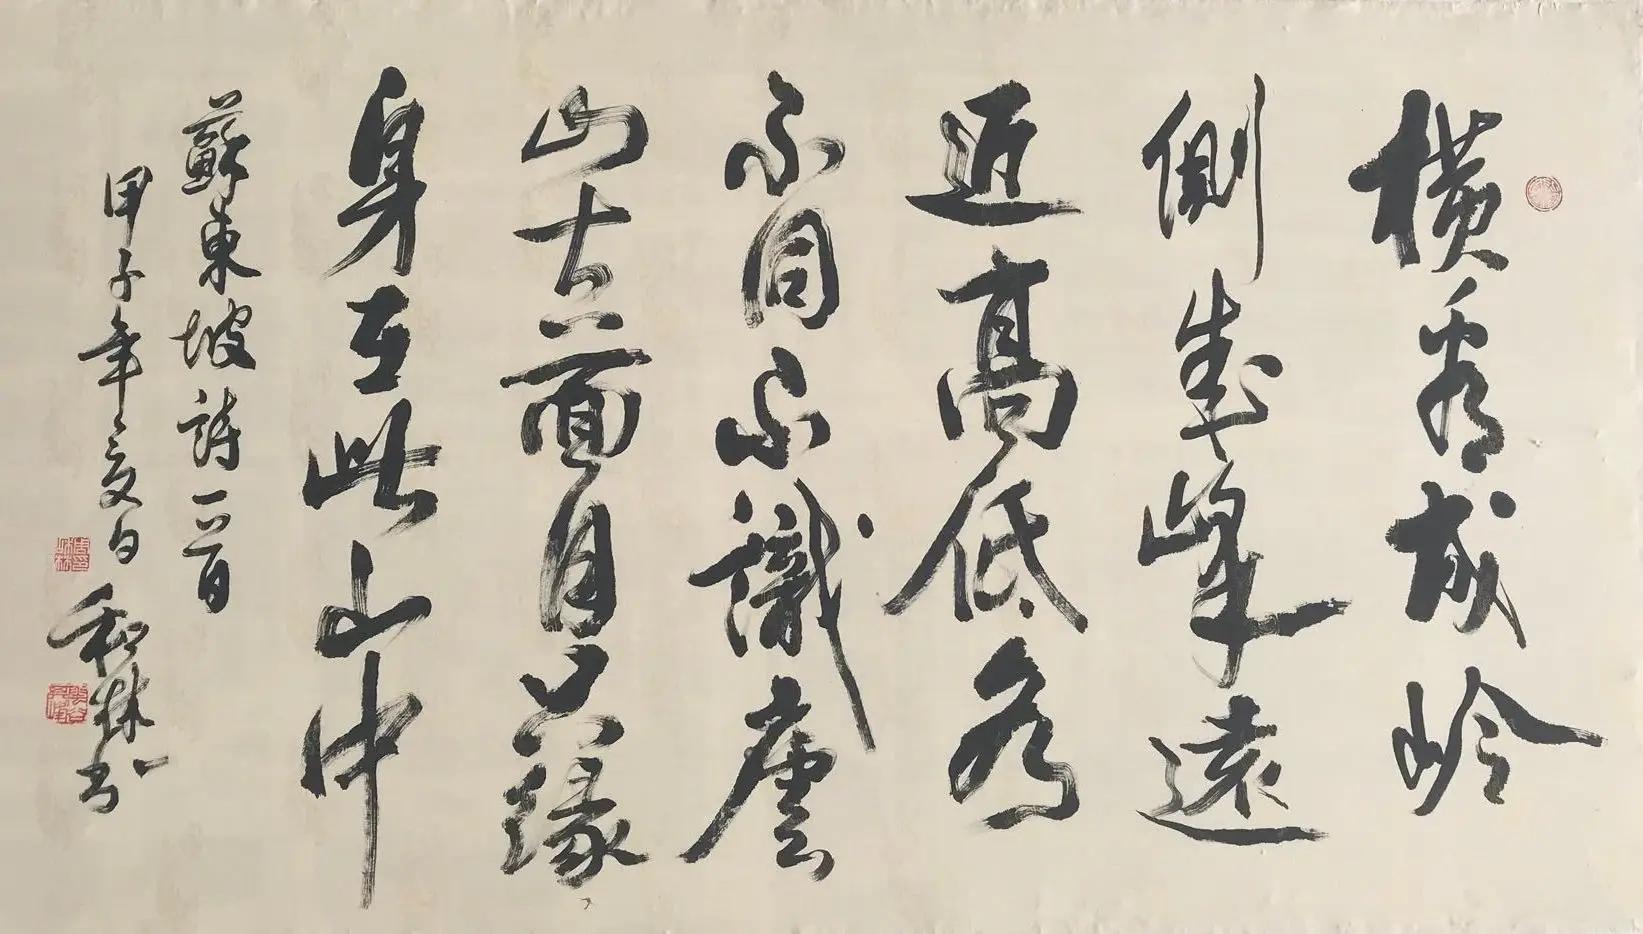 橫看成岭
側成峰遠
近高低各
不同不識廬
山真面目只緣
身在此山中
蘇東坡詩一首
甲子年夏日 和林书